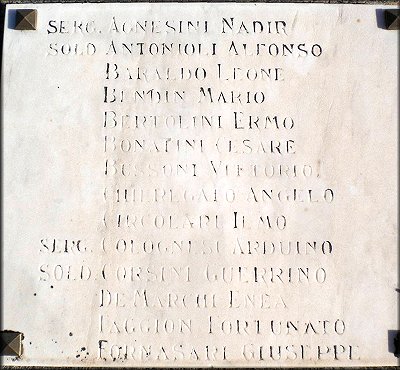 SERG. AGNESINI NADIR
SOLD ANTONIOLI ALFONSO
BARALDO LEONE
BENDIN MARIO
BERTOLINI ERMO
BONAFINI CESARE
BUSSONI VITTORIO
CHIEREGATO ANGELO
CIRCOLARI ILMO
SERG. COLOGNESI ARDUINO
SOLD. CORSINI GUERRINO
DE MARCHI ENEA
FAGGION FORTUNATO
FORNASARI GIUSEPPE